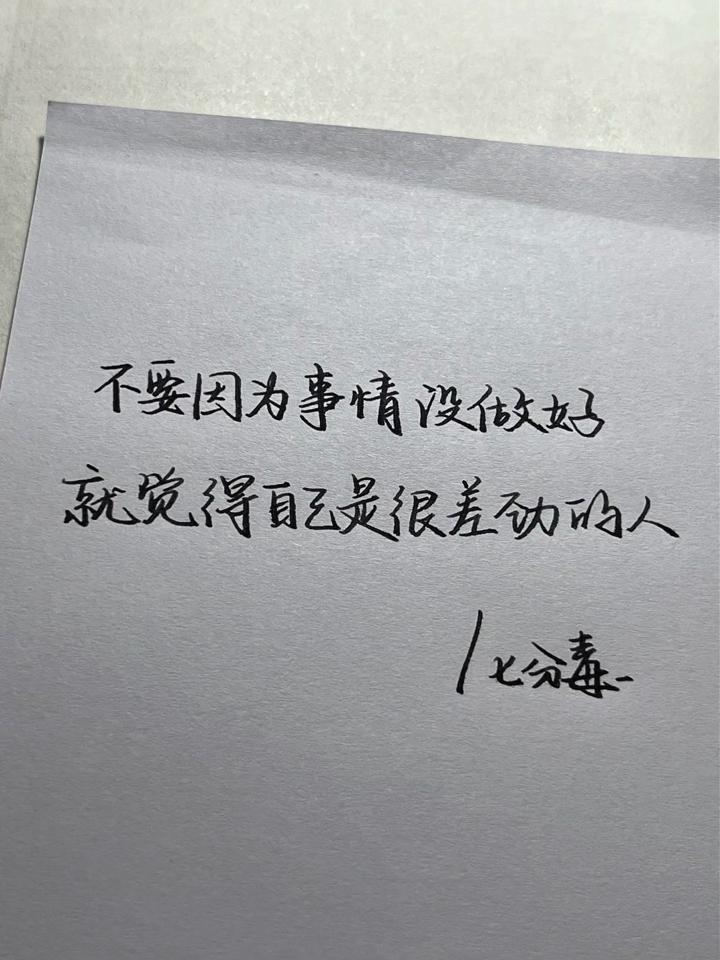 不要因为事情没做好
就觉得自己是很差劲的人
/七分毒